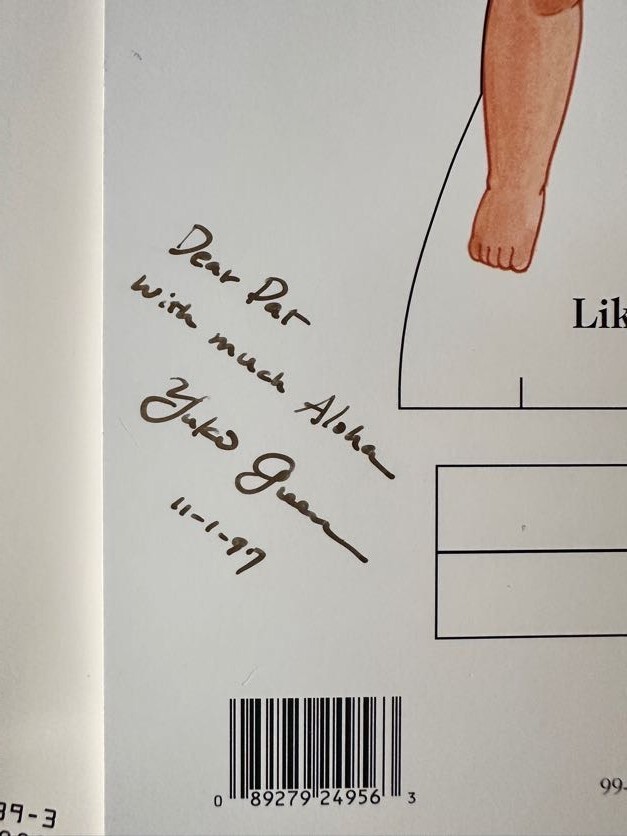 Dear Pat
with much Aloha
Yuko Green
11-1-97
Lik
0 89279 24956 3
99-
39-3